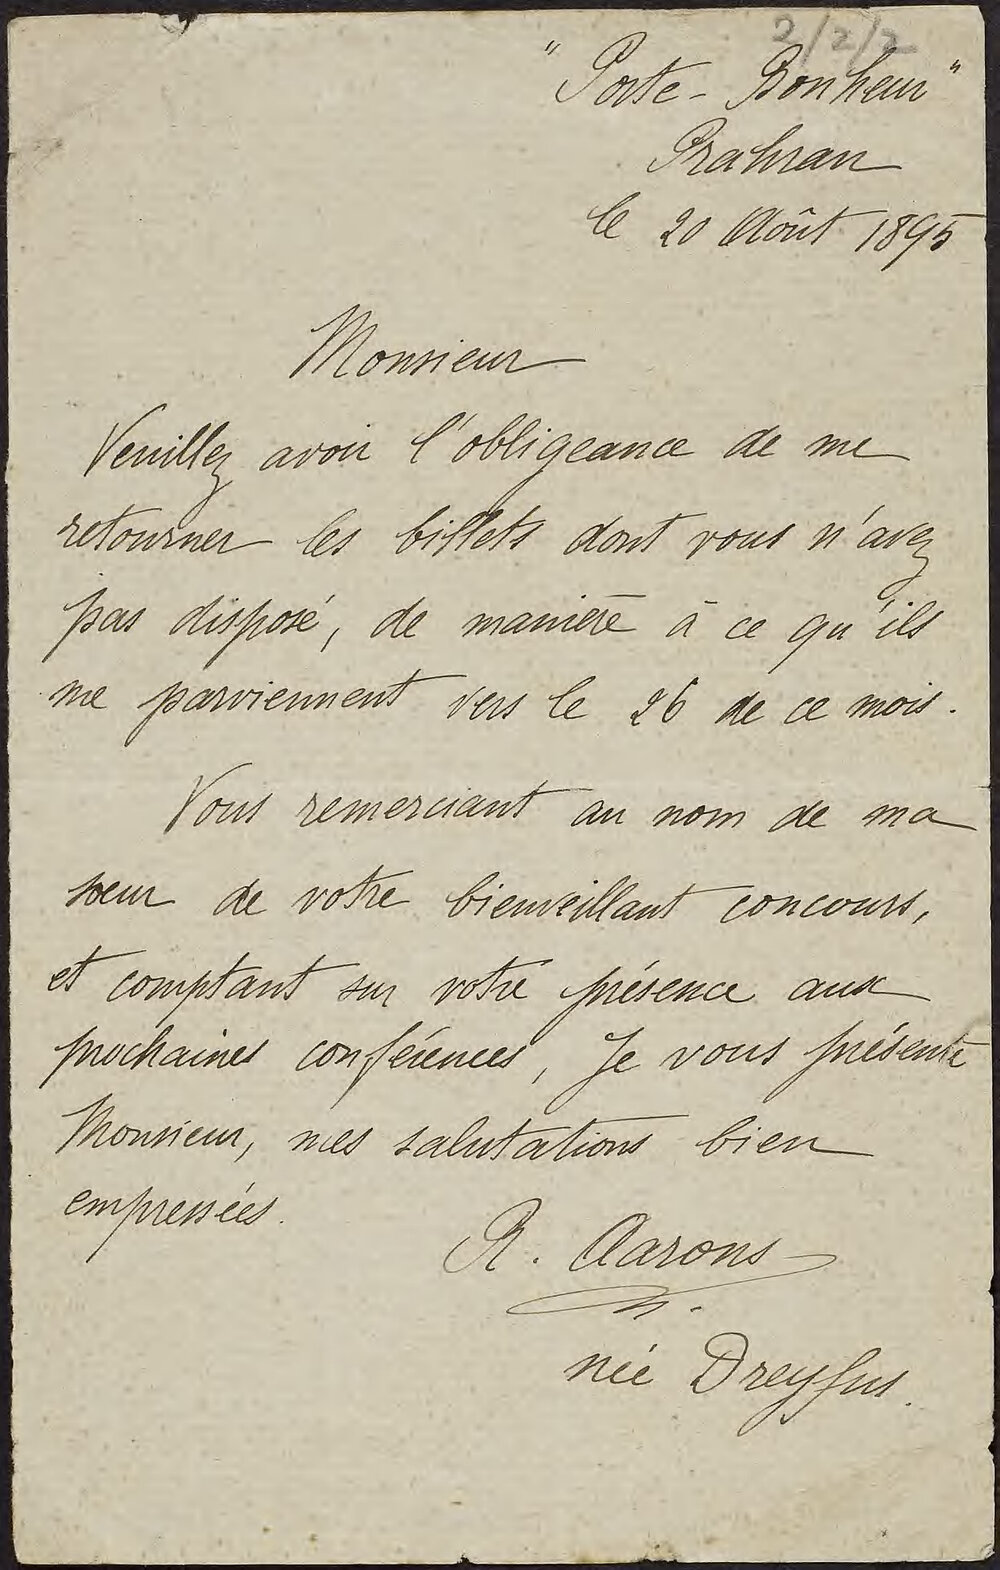 2/2/2
"Porte-Bonheur"
Prahran
le 20 Août 1895
Monsieur
Veuillez avoir l'obligeance de me
retourner les billets dont vous n'avez
pas disposé, de manière à ce qu'ils
me parviennent vers le 26 de ce mois.
Vous remerciant au nom de ma
soeur de votre bienveillant concours,
et comptant sur votre présence aux
prochaines conférences, je vous présente
Monsieur, mes salutations bien
empressées.
R. Aarons
née Dreyfus.